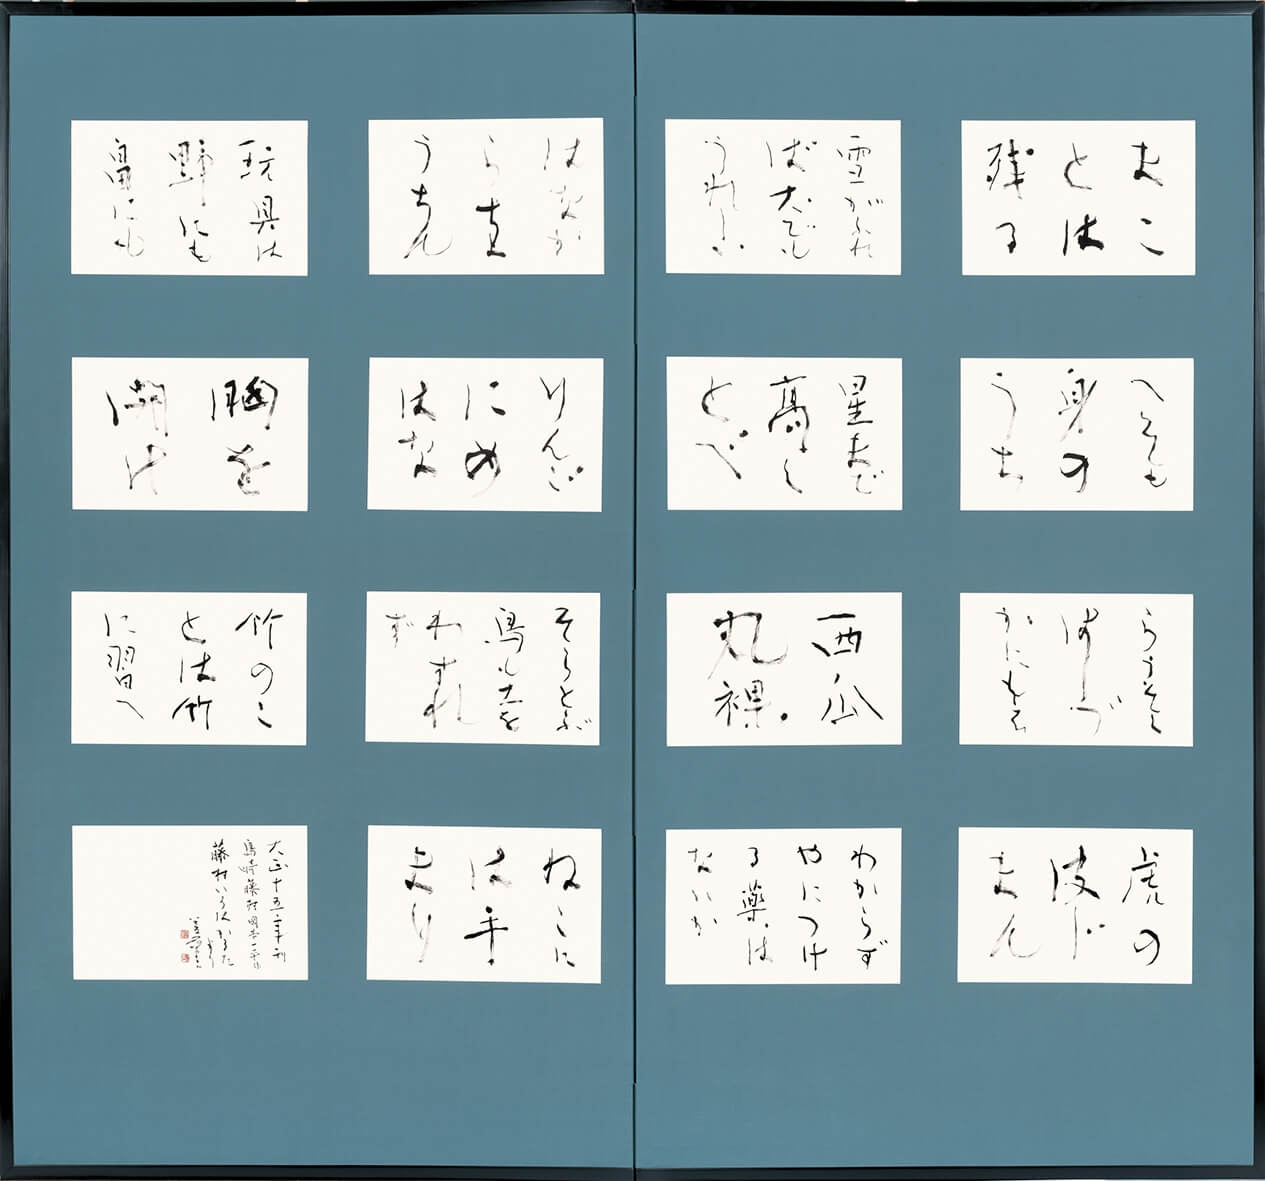 まこ
とは
残る
へそも
身の
うち
らうそく
はしづ
かにもえ
虎の
皮じ
まん
雪がふれ
ば犬でも
うれしい
星まで
高く
とべ
西瓜
丸裸
わからず
やにつけ
る薬は
ないか
はなか
ら
うちん
りんご
にめ
はな
そらとぶ
鳥も土を
わすれ
ず
ねこに
は手
まり
玩具は
野にも
畠にも
胸を
開け
竹のこ
とは竹
に習へ
大正十五年刊
島崎藤村岡本一平
藤村いろはかるた
より